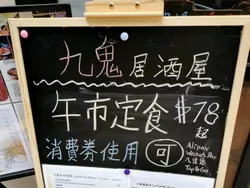 九鬼居酒屋
午市定食 $78起
消費券使用 可
Alipay
Wechat Pay
八達通
Tap & Go